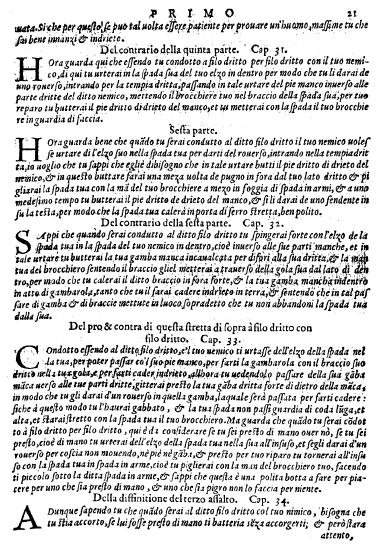 PRIMO 21
uata. Si che per questo, se puo tal volta essere patiente per prouare un'huomo, massime tu che
sai bene innanzi & indrieto.
Del contrario della quinta parte. Cap. 31.
HOra guarda qui che essendo tu condotto a filo dritto per filo con il tuo nemi-
co, di qui tu urterai in la spada sua del tuo elzo in dentro per modo che tu li darai de
uno rouerso, intrando per la tempia dritta, passando in tale urtare del pie manco inuerso alle
parte dritte del ditto nemico, mettendo il brocchiere tuo nel braccio della spada sua, per tuo
reparo tu butterai il pie dritto di drieto del manco, et tu metterai con la spada il tuo brocchie
re in guardia di faccia.
Sesta parte.
HOra guarda bene che quãdo tu serai conduto al ditto filo dritto il tuo nemico uoles
se urtare di l'elzo suo nella spada tua per darti del rouerso, intrando nella tempia drit
ta, io uoglio che tu sappi che eglie dibisogno che in tale urtare butti il pie dritto di drieto del
nemico, & in questo buttare farai una meza uolta de pugno in fora dal tuo lato dritto & pi
gliarai la spada tua con la mã del tuo brocchiere a mezo in foggia di spada in armi, & a uno
medesimo tempo tu butterai il pie dritto de drieto del manco, & si li darai de uno fendente in
su la testa, per modo che la spada tua calerà in porta di ferro stretta, ben polito.
Del contrario della sesta parte. Cap. 32.
SAppi che quando serai condutto al ditto filo dritto tu spingerai forte con l'elzo de la
spada tua in la spada del tuo nemico in dentro, cioè inuerso alle sue parti manche, et in
tale urtare tu butterai la tua gamba manca incaualcata per difuri alla sua dritta, & la man
tua del brocchiero sentendo il braccio gliel metterai a trauerso della gola sua dal lato di den
tro, per modo che tu calerai il ditto braccio in fora forte, & la tua gamba mancha indentro
in atto di gambarola, tanto che tu il farai cadere indrieto in terra, & sentendo che in tal pas
sare di gamba & di braccie mettute in luoco sopradetto che tu non abbandoni la spada tua
dalla sua.
Del pro & contra di questa stretta di sopra à filo dritto con
filo dritto. Cap. 33.
COndotto essendo al ditto filo dritto, e'l tuo nemico ti urtasse dell'elzo della spada nel
la tua, per poter passar co'l suo piè manco, per farti la gambarola con il braccio suo
dritto nella tua gola, e per farti cader, indrieto, allhora tu uedendolo passare della sua gãba
mãca uerso alle tue parti dritte, gitterai presto la tua gãba dritta forte di dietro della mãca,
in modo che tu gli darai d'un rouerso in quella gamba, laquale serà passata per farti cadere:
siche à questo modo tu l'hauerai gabbato, & la tua spada non passi guardia di coda lũga, et
alta, et starai stretto con la spada tua il tuo brocchiero. Ma guarda che quãdo tu serai cõdot
to à filo dritto per filo dritto, qui è da considerare se tu sei presto di mano ouer nò, se tu sei
presto, ioè di mano tu urterai dell'elzo della spada tua nella sua all'insuso, et segli darai d'un
rouerso per coscia non mouendo, nè piè nè gãba, & presto per tuo riparo tu tornerai all'insu
so con la spada tua in spada in arme, cioè tu piglierai con la man del brocchiero tuo, facendo
ti piccolo sotto la ditta spada in arme, & sappi che questa è una polita botta a fare per pia-
cere per uno che sia presto, & uno che sia pigro non lo faccia per niente.
Della diffinitione del terzo assalto. Cap. 34.
ADunque sapendo tu che quãdo serai al ditto filo dritto col tuo nimico, bisogna che
tu stia accorto, se lui fosse presto di mano ti batteria seza accorgerti; & però stara
attento,